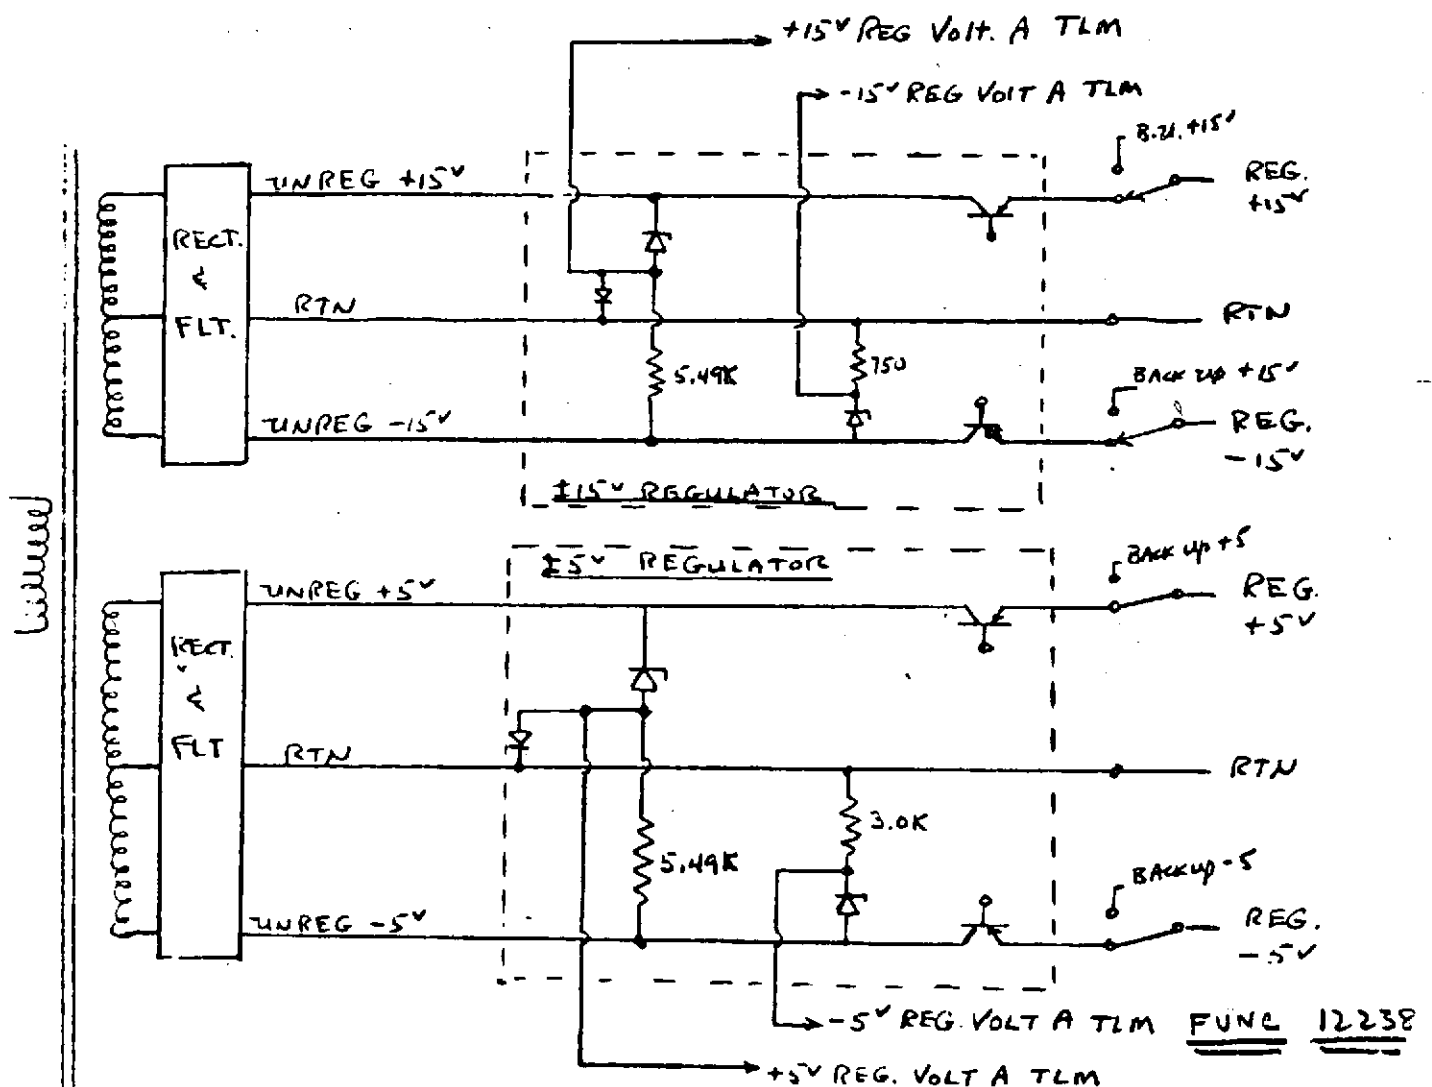 +15V REG Volt. A TLM
-15V REG VOLT A TLM
B.U. +15V
UNREG +15V
REG.
+15V
RECT.
&
FLT.
RTN
RTN
5.49K
750
BACK up +15V
UNREG -15V
REG.
-15V
±15V REGULATOR
±5V REGULATOR
BACK up +5
UNREG +5V
REG.
+5V
RECT.
&
FLT
RTN
RTN
3.0K
5.49K
BACK up -5
UNREG -5V
REG.
-5V
-5V REG. VOLT A TLM FUNC 12238
+5V REG. VOLT A TLM